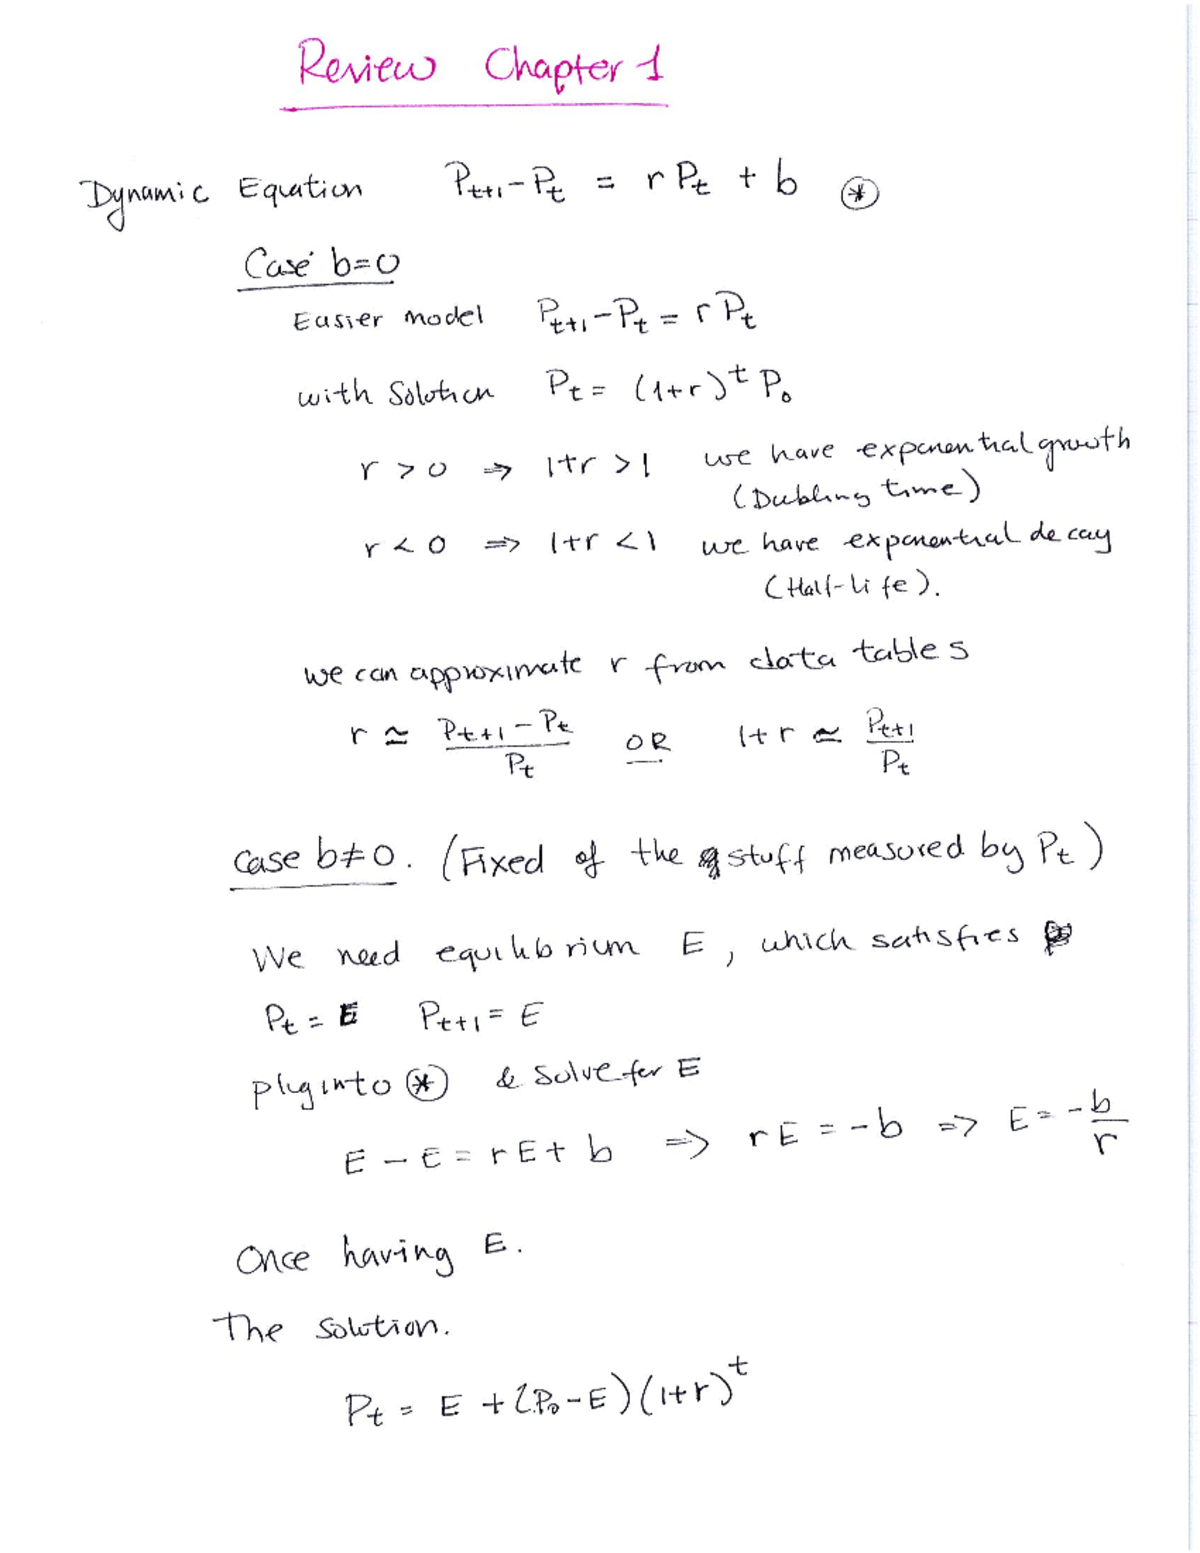 Review Chapter 1
Dynamic Equation Pt+1 - Pt = r Pt + b (*)
Case b=0
Easier model Pt+1 - Pt = r Pt
with Solution Pt = (1+r)^t P0
r > 0 ⇒ 1+r > 1 we have exponential growth
(Dubling time)
r < 0 ⇒ 1+r < 1 we have exponential decay
(Half-life).
we can approximate r from data tables
r ≃ (Pt+1 - Pt)/Pt OR 1+r ≃ Pt+1/Pt
Case b≠0. (Fixed of the stuff measured by Pt)
We need equilibrium E, which satisfies
Pt = E Pt+1 = E
plug into (*) & Solve for E
E - E = rE + b ⇒ rE = -b ⇒ E = -b/r
Once having E.
The solution.
Pt = E + (P0 - E)(1+r)^t